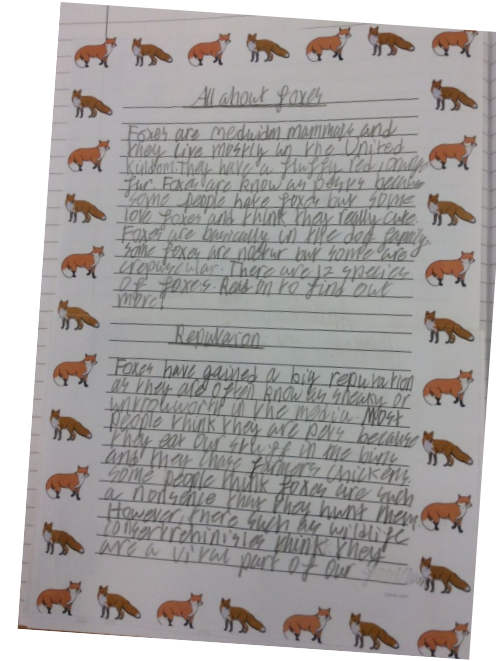 All about foxes
Foxes are medwidm mammals and
they live mostly in the United
Kindom. They have a fluffy red/orange
fur. Foxes are know as pests because
some people hate foxes but some
love foxes and think they really cute.
Foxes are basically in the dog family.
Some foxes are noctur but some are
crepuscular. There are 12 species
of foxes. Read on to find out
more!
Reputation
Foxes have gained a big reputation
as they are often know as sneaky or
in the media. Most
people think they are pets because
they eat our stuff in the bins
and they chase farmers chickens.
Some people think foxes are such
a nonsence that they hunt them.
However, there such as wildlife
think they
are a vital part of our